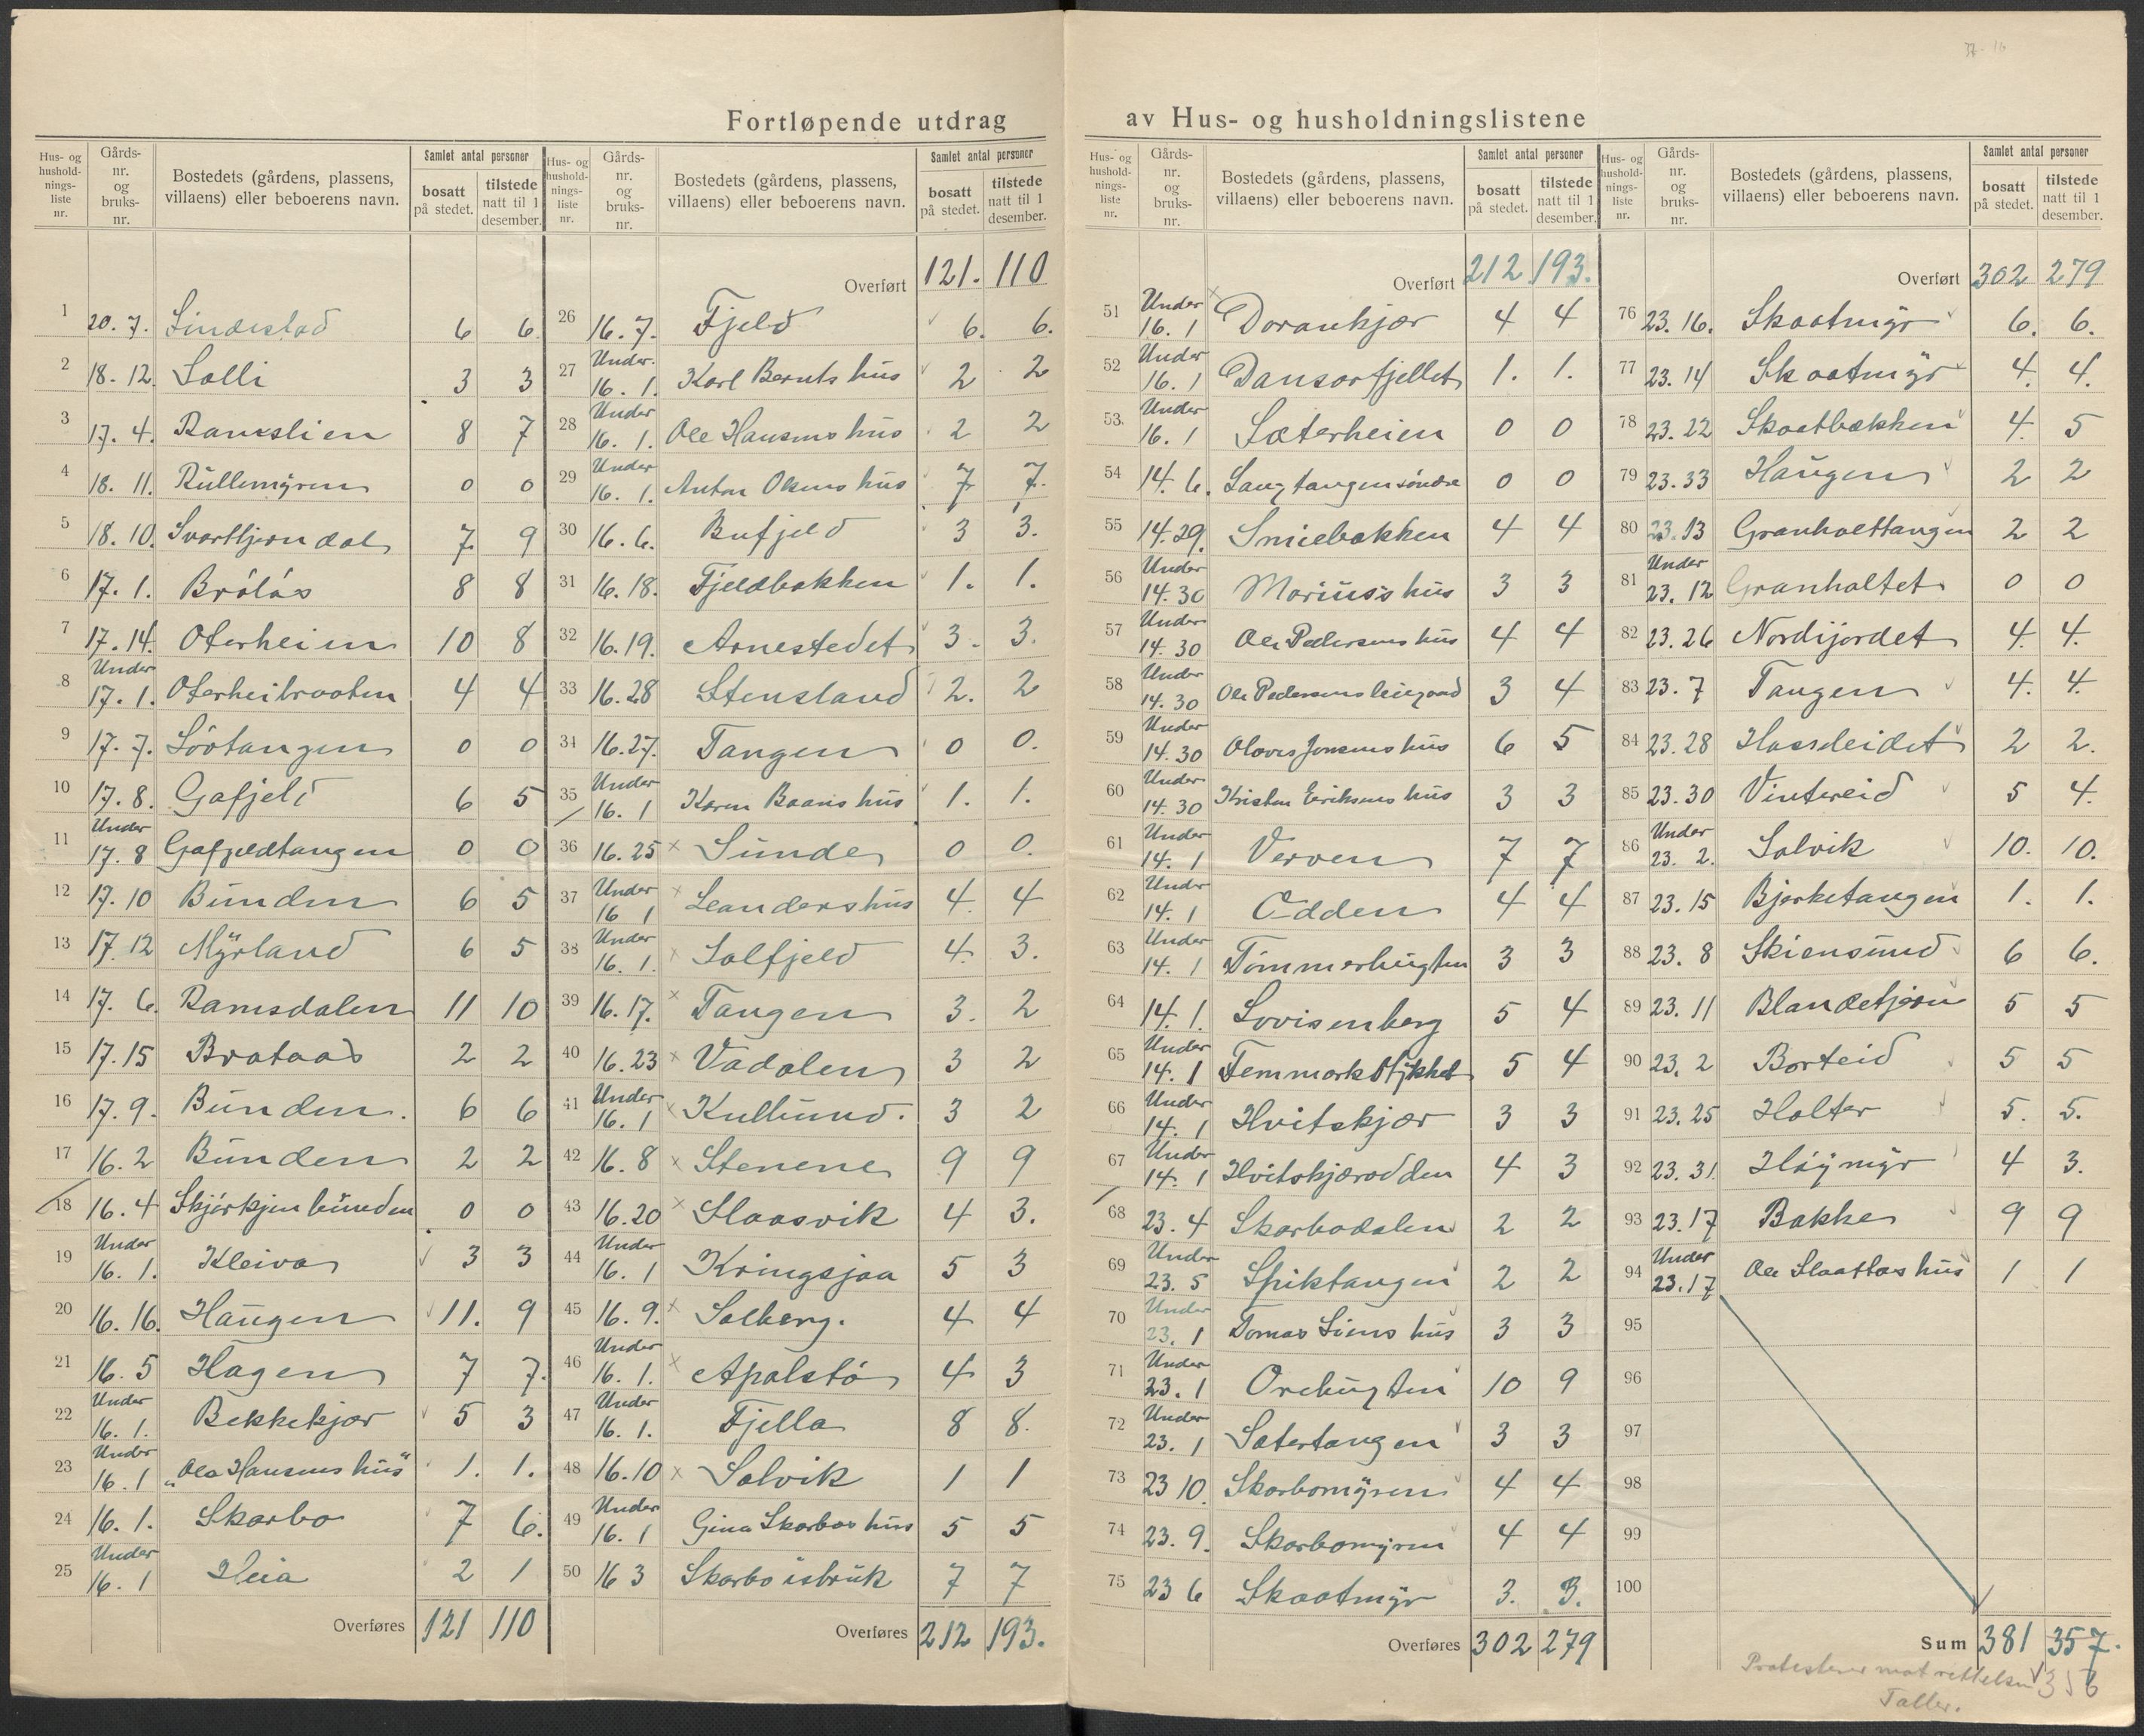 Fortløpende utdrag av Hus- og husholdningslistene
Hus- og husholdningsliste nr. | Gårdsnr. og bruksnr. | Bostedets (gårdens, plassens, villaens) eller beboerens navn. | Samlet antal personer bosatt på stedet. | tilstede natt til 1 desember.
1 20. 7. Lindestad 6 6
2 18. 12. Solli 3 3
3 17. 4. Ramslien 8 7
4 18. 11. Rullemyren 0 0
5 18. 10. Svarttjerndal 7. 9
6 17. 1. Bråtås 8 8
7 17. 14. Oterheim 10 8
8 Under 17. 1. Oterheibraaten 4 4
9 17. 7. Lövtangen 0 0
10 17. 8. Gafjeld 6 5
11 Under 17. 8 Gafjeldtangen 0 0
12 17. 10 Bunden 6 5
13 17. 12 Myrland 6 5
14 17. 6. Ramsdalen 11 10
15 17. 15 Brataas 2 2
16 17. 9. Bunden. 6 6
17 16. 2 Bunden 2 2
18 16. 4 Skjörkjenbunden 0 0
19 Under 16. 1. Kleiva 3 3
20 16. 16. Haugen 11. 9
21 16. 5 Hagen 7 7.
22 Under 16. 1. Bekkekjær 5 3
23 Under 16. 1 „Ole Hansens hus" 1. 1.
24 16. 1. Skarbo 7 6.
25 Under 16. 1 Heia 2 1
Overføres 121 110
Overført 121. 110
26 16. 7. Fjeld 6. 6.
27 Under 16. 1. Karl Bernts hus 2 2
28 Under 16. 1. Ole Hansens hus 2 2
29 Under 16. 1. Anton Olsens hus 7 7.
30 16. 6. Bufjeld 3 3.
31 16. 18. Fjeldbakken 1. 1.
32 16. 19. Arnestedet 3. 3.
33 16. 28 Stensland 2. 2
34 16. 27. Tangen 0 0.
35 Under 16. 1 Karen Baans hus 1. 1.
36 16. 25 x Sunde 0 0.
37 Under 16 1 x Leanders hus 4. 4
38 Under 16. 1. x Solfjeld 4. 3.
39 16. 17. x Tangen 3. 2
40 16. 23 x Vadalen 3 2
41 Under 16. 1 x Kullund. 3 2
42 16. 8 x Stenene 9 9
43 16. 20 x Slaasvik 4 3.
44 Under 16. 1 Kringsjaa 5 3
45 16. 9. x Solberg. 4 4
46 Under 16. 1. x Apalstö 4 3
47 Under 16. 1. Fjella 8 8.
48 16. 10 x Solvik 1 1
49 Under 16. 1 Gina Skarbos hus 5 5
50 16 3 Skarbo isbruk 7 7
Overføres 212 193.
Overført 212 193.
51 Under 16. 1 x Darankjær 4 4
52 Under 16. 1 Dansarfjellet 1. 1.
53. Under 16. 1 Sæterheien 0 0
54 14. 6. Langtangen söndre 0 0
55 14. 29. Smiebakken 4 4
56 Under 14. 30 Marius's hus 3 3
57 Under 14. 30 Ole Pedersens hus 4 4
58 Under 14. 30 Ole Pedersens leiegaard 3 4
59 Under 14. 30 Olaves Jensens hus 6 5
60 Under 14. 30 Kristen Eriksens hus 3 3
61 Under 14. 1 Verven 7 7
62 Under 14. 1 Odden 4 4
63 Under 14. 1 Tömmerbugten 3 3
64 14. 1. Lovisenberg 5 4
65 Under 14. 1 Femmarkstykket 5 4
66 Under 14. 1 Hvitskjær 3 3
67 Under 14. 1 Hvitskjærodden 4 3
68 23. 4 Skarbodalen 2 2
69 Under 23. 5 Spiktangen 2 2
70 Under 23. 1 Tomas Liens hus 3 3
71 Under 23. 1 Orebugten 10 9
72 Under 23. 1 Sætertangen 3 3
73 23 10. Skarbomyren 4 4
74 23. 9. Skarbomyren 4 4
75 23 6 Skaatmyr 3. 3.
Overføres 302 279
Overført 302 279
76 23. 16. Skaatmyr 6. 6.
77 23. 14 Skaatmyr 4. 4.
78 23. 22 Skaatbækken 4. 5
79 23. 33 Haugen 2 2
80 23. 13 Granholttangen 2 2
81 Under 23. 12 Granholtet 0 0
82 23. 26 Nordijordet 4. 4.
83 23. 7 Tangen 4. 4.
84 23. 28 Hassleidet 2 2.
85 23. 30 Vintereid 5 4.
86 Under 23. 2. Solvik 10. 10.
87 23. 15 Bjerketangen 1. 1.
88 23. 8 Skiensund 6 6.
89 23. 11 Blandetjern 5 5
90 23. 2 Borteid 5 5
91 23. 25 Holter 5. 5.
92 23. 31. Höymyr 4 3.
93 23. 17 Bakke 9 9
94 Under 23. 17 Ole Slaattas hus 1 1
95
96
97
98
99
100
Sum 381 357.
Protesterer mot rettelsen 356
Teller.